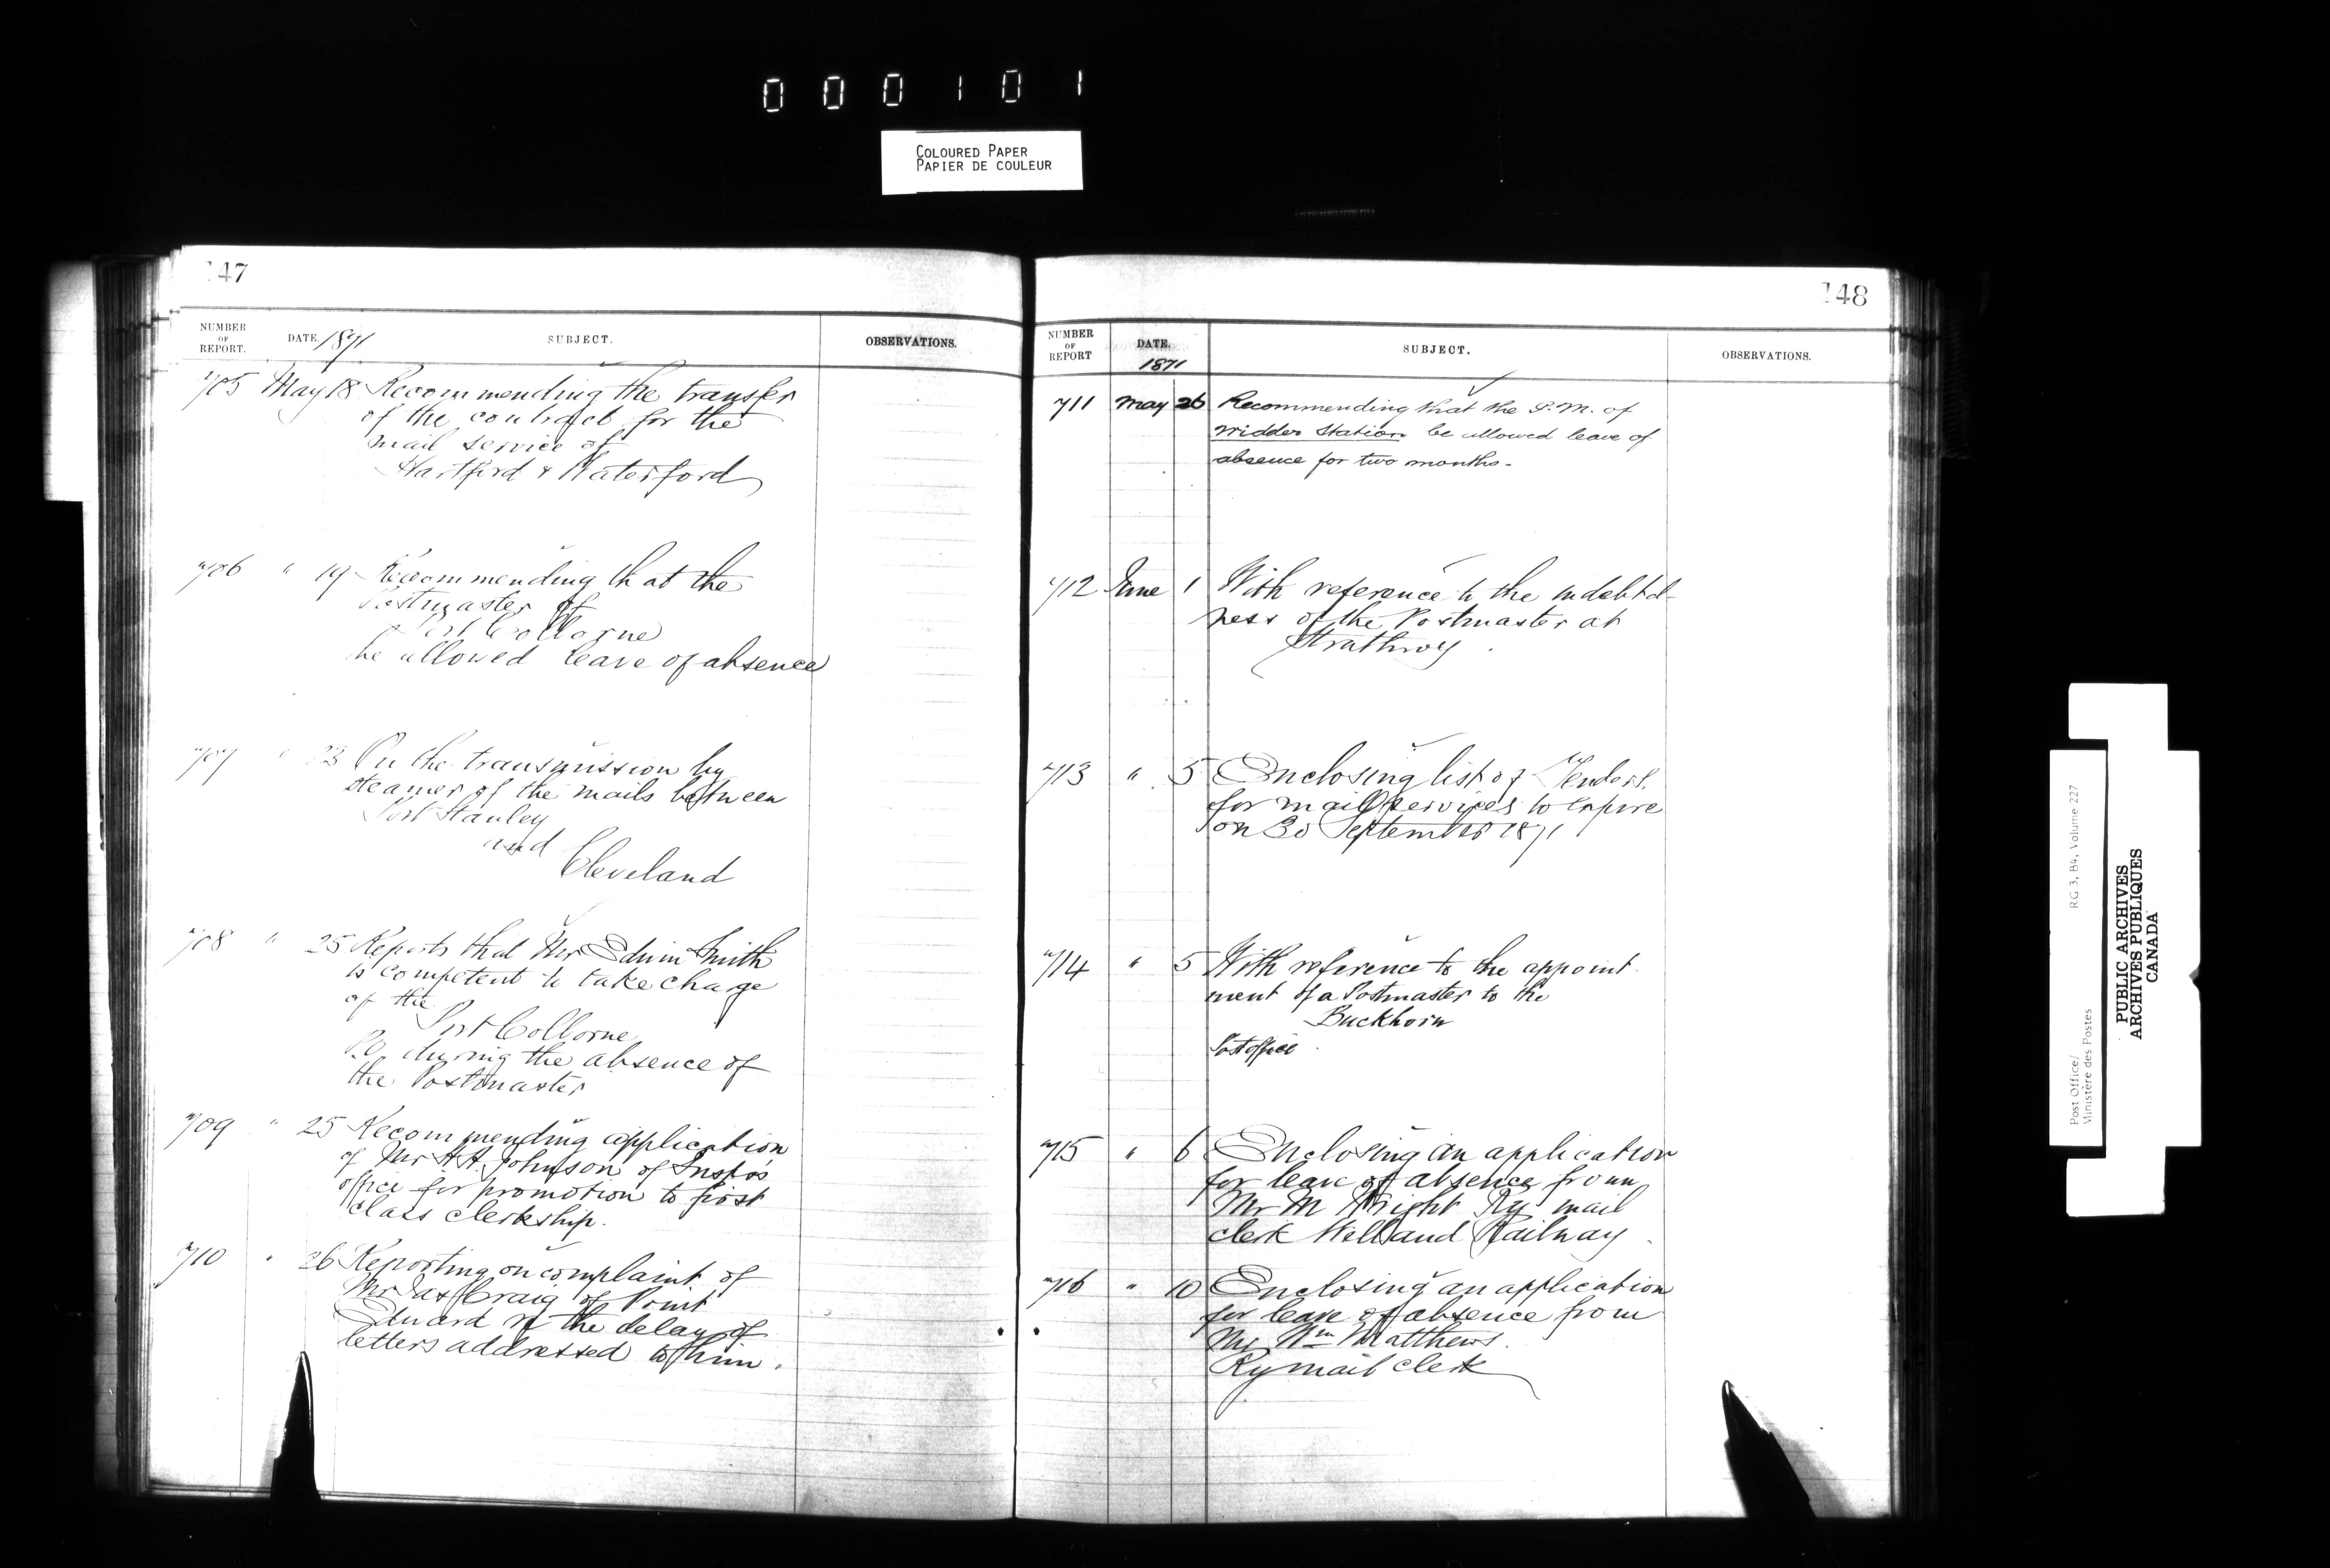 000101
COLOURED PAPER
PAPIER DE COULEUR
147
NUMBER OF REPORT. DATE. 1871 SUBJECT. OBSERVATIONS.
705 May 18 Recommending the transfer
of the contract for the
mail service of
Hartford & Waterford
706 " 19 Recommending that the
Postmaster of
Port Colborne
be allowed leave of absence
707 " 23 On the transmission by
steamer of the mails between
Port Stanley
and
Cleveland
708 " 25 Reports that Mr Edwin Smith
is competent to take charge
of the
Port Colborne
P.O. during the absence of
the Postmaster
709 " 25 Recommending application
of Mr A.A. Johnson of Inspr's
office for promotion to first
class clerkship.
710 " 26 Reporting on complaint of
Mr Jas Craig of Point
Edward re the delay of
letters addressed to him.
148
NUMBER OF REPORT DATE. 1871 SUBJECT. OBSERVATIONS.
711 May 26 Recommending that the P.M. of
Widder Station be allowed leave of
absence for two months.
712 June 1 With reference to the indebted-
ness of the Postmaster at
Strathroy
713 " 5 Enclosing list of Tenders
for mail services to expire
on 30 September 1871
714 " 5 With reference to the appoint
ment of a Postmaster to the
Buckhorn
Post office
715 " 6 Enclosing an application
for leave of absence from
Mr M Wright Ry mail
clerk Welland Railway
716 " 10 Enclosing an application
for leave of absence from
Mr Wm Matthews.
Ry mail clerk
Post Office/ RG 3, B4, Volume 227
Ministère des Postes
PUBLIC ARCHIVES
ARCHIVES PUBLIQUES
CANADA